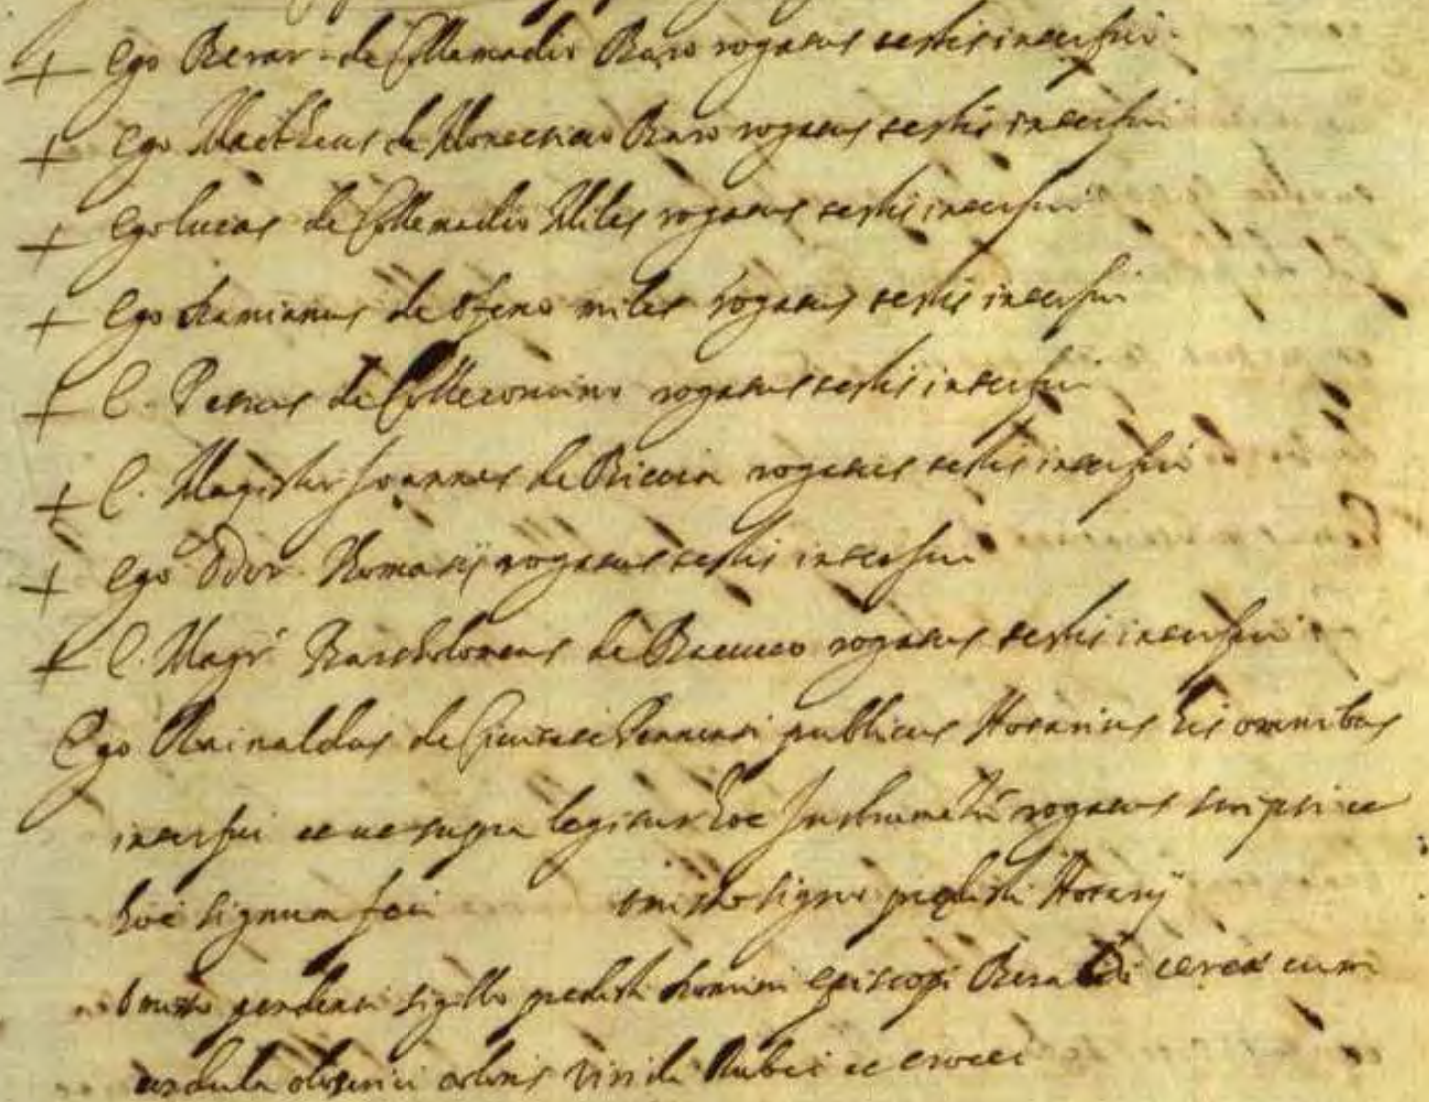 + Ego Berar. de Collemadio Baro rogatus testis interfui
+ Ego Mattheus de Baro rogatus testis interfui
+ Ego Lucas de Collemadio Miles rogatus testis interfui
+ Ego Damianus de Ofeno miles rogatus testis interfui
+ E. Petrus de rogatus testis interfui
+ E. Magister Joannes de rogatus testis interfui
+ Ego Odor. Thomasij rogatus testis interfui
+ E. Magr Bartholomeus de rogatus testis interfui
Ego Rainaldus de Civitate Pennensi publicus Notarius his omnibus
interfui et ut supra legitur hoc Instrumentũ rogatus scripsi et
hoc signum feci omisso signo predicti Notarij
omisso pendenti sigillo predicti Domini Episcopi Beraldi cereo cum
cordula oloserici coloris viridi Rubei et crocei